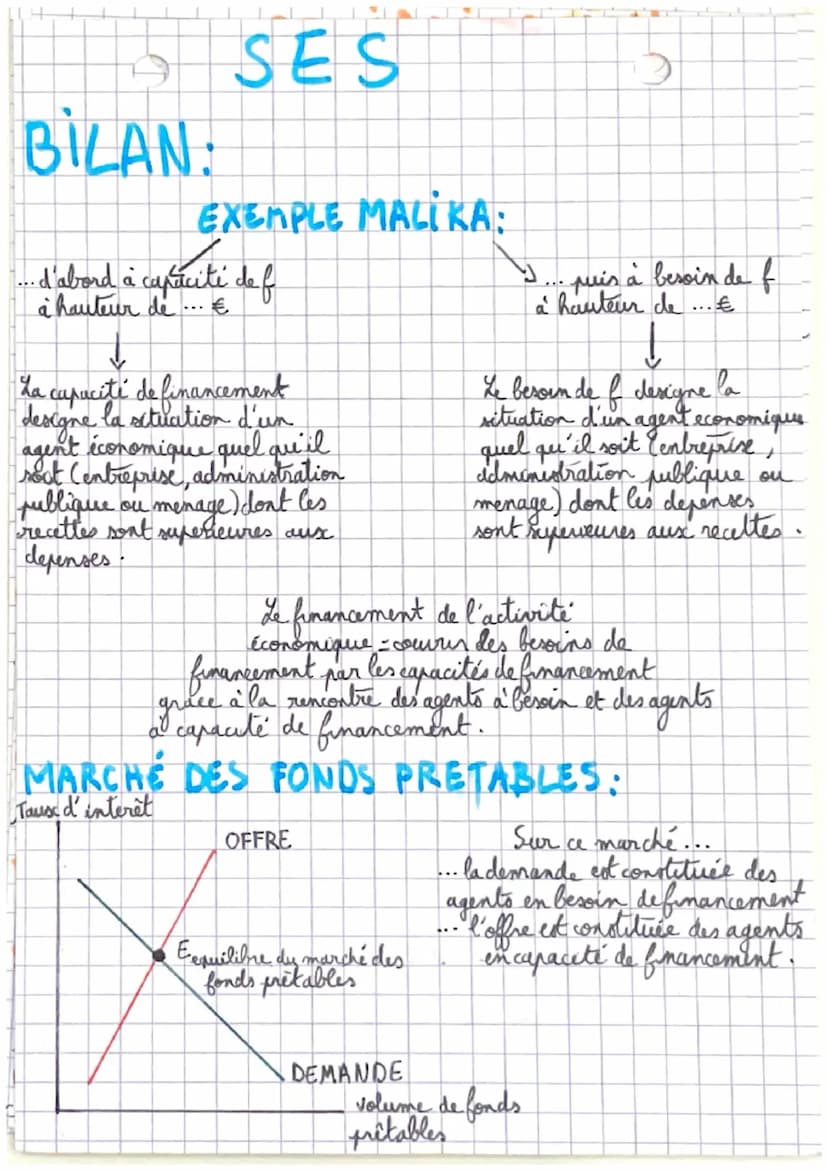 SES
BILAN:
EXEMPLE MALIKA:
... d'abord à capacité de f
à hauteur de ... €
... puis à besoin de f
à hauteur de ... €
La capacité de financement
designe la situation d'un
agent économique quel qu'il
soit (entreprise, administration
publique ou menage) dont les
recettes sont superieures aux
depenses.
Le besoin de f designe la
situation d'un agent economique
quel qu'il soit (entreprise,
administration publique ou
menage) dont les depenses
sont superieures aux recettes.
Le financement de l'activité
économique = couvrir des besoins de
financement par les capacités de financement
grâce à la rencontre des agents à besoin et des agents
à capacité de financement.
MARCHÉ DES FONDS PRETABLES:
Taux d'interêt
OFFRE
E equilibre du marché des
fonds prêtables
DEMANDE
volume de fonds
prêtables
Sur ce marché...
... la demande est constituée des
agents en besoin de financement
... l'offre est constituée des agents
en capacité de financement.